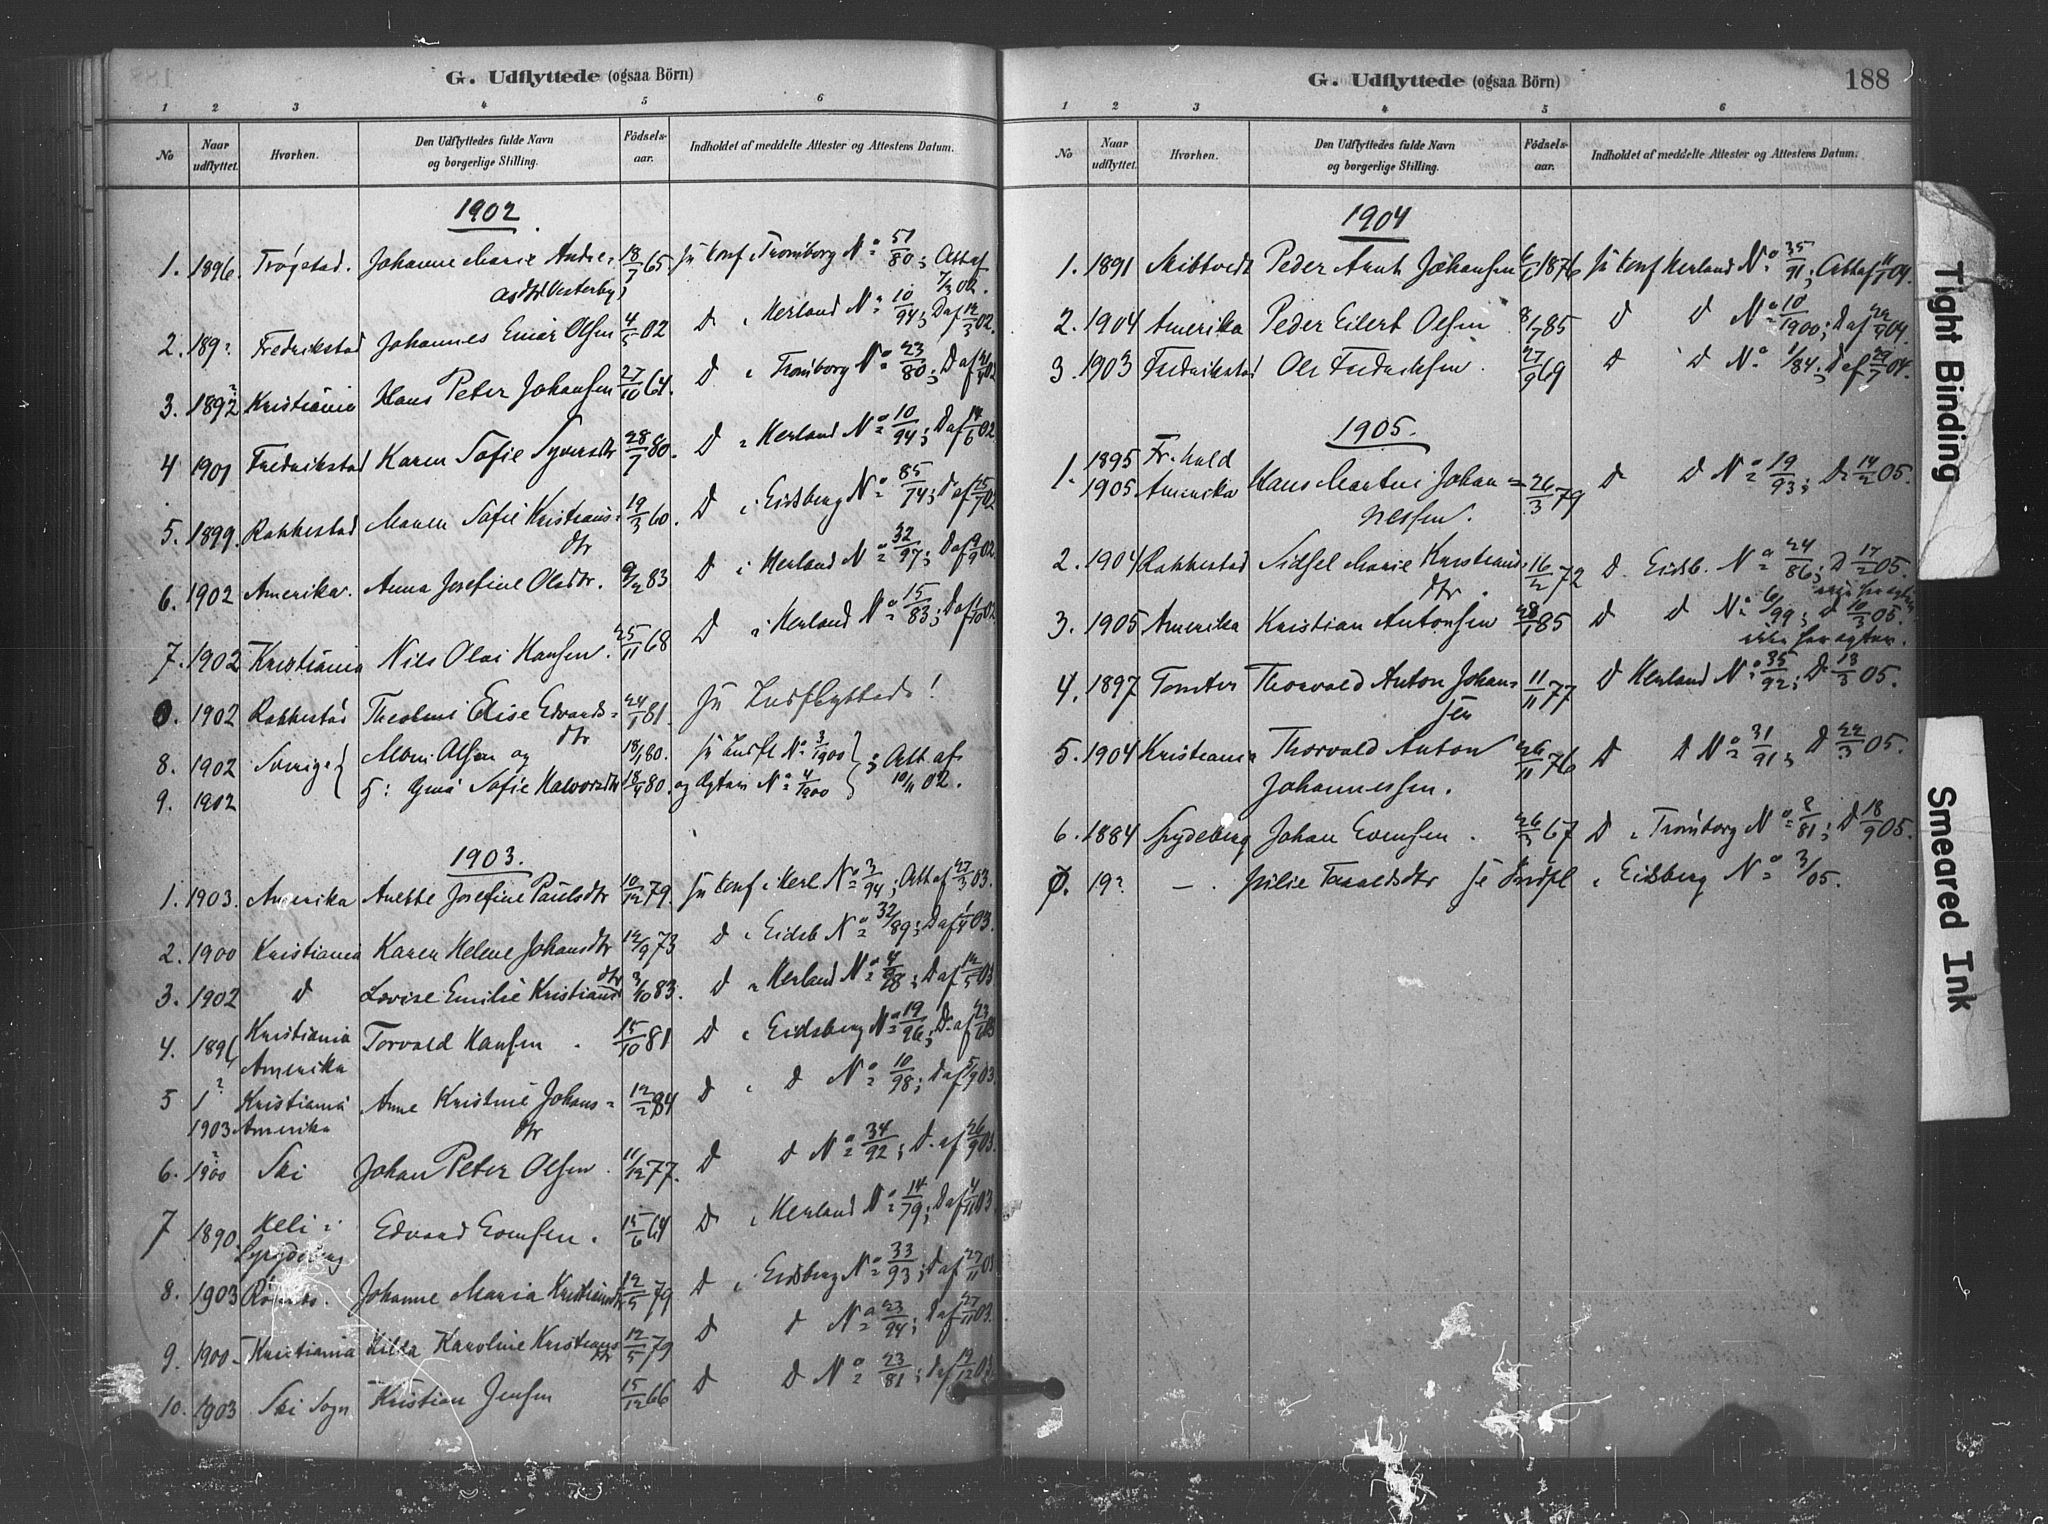 G. Udflyttede (ogsaa Börn)
1 2 3 4 5 6
No Naar udflyttet. Hvorhen. Den Udflyttedes fulde Navn og borgerlige Stilling. Födsels-aar. Indholdet af meddelte Attester og Attestens Datum.
1902
1. 1896. Trøgstad. Johanne Marie Andre- 18/7 65 Jfr Konf i Trømborg No 51/80; Att af
asdtr Vesterby) 7/3 02.
2. 189? Fredrikstad Johannes Einar Olsen 4/5 02 D i Herland No 10/94; D af 12/3 02.
3. 1892? Kristiania Hans Peter Johansen 27/10 64. D i Trømborg No 23/80; D af 21/4 02
4 1901 Fredrikstad Karen Sofie Syversdtr 28/7 80. D i Herland No 10/94; D af 14/6 02
5. 1899. Rakkestad Maren Sofie Kristians- 19/3 60. D i Eidsberg No 85/74; D af 25/7 02
dtr
6. 1902 Amerika. Anna Josefine Olsdtr. 9/12 83 D i Herland No 32/97; D af 9/9 02.
7. 1902 Kristiania Nils Olai Hansen. 25/11 68 D i Herland No 15/83; D af 1/10 02
0. 1902 Rakkestad Theoline Elise Edvards- 24/1 81. Jfr Indflyttede!
dtr
8. 1902 Sverige { Olsen og 18/1 80. Jfr Indfl No 3/1900 } ; Att af
9. 1902 Sofie Halvorsdtr 18/4 80. og No 4/1900 } 10/11 02.
1903.
1. 1903. Amerika Anette Josefine Paulsdtr 10/12 79. Jfr Konf i Herl No 3/94; Att af 27/3 03.
2. 1900 Kristiania Karen Helene Johansdtr 12/9 73 D i Eidsb No 32/89; D af 1/4 03.
3. 1902 D Lovise Emilie Kristiansdtr 3/10 83. D i Herland No 4/98; D af 12/5 03
4. 1896 Kristiania Torvald Hansen. 15/10 81 D i Eidsberg No 19/96; D af 23/6 03
Amerika
5 1? Kristiania Anne Kristine Johans- 12/2 84 D i D No 10/98; D af 5/9 03.
1903 Amerika dtr
6. 1900? Ski Johan Peter Olsen. 11/12 77. D D No 34/92; D. af 26/9 03.
7 1890. Heli i Edvard Evensen. 15/6 64 D i Herland No 14/79; D af 4/11 03
Spydeberg
8. 1903 Johanne Maria Kristiansdtr 12/5 79 D i Eidsberg No 33/93; D af 27/11 03
9. 1900- Kristiania Hilda Karoline Kristians 12/5 79 D D No 23/94; D af 27/11 03.
dtr
10. 1903 Ski Sogn Kristian Jensen 15/12 66 D D No 23/81; D af 19/12 03.
G. Udflyttede (ogsaa Börn) 188
1 2 3 4 5 6
No Naar udflyttet. Hvorhen. Den Udflyttedes fulde Navn og borgerlige Stilling. Födsels-aar. Indholdet af meddelte Attester og Attestens Datum.
1904
1. 1891 Skibtvedt Peder Arnt Johansen 6/1 1876 Jfr Konf Herland No 35/91; Att af 11/1 04.
2. 1904 Amerika Peder Eilert Olsen 8/7 85 D D No 10/1900; D af 22/9 04.
3. 1903 Fredrikstad Ole Fredriksen. 27/9 69 D D No 1/84; D af 29/7 04.
1905.
1. 1895 Fr.hald
1905 Amerika Hans Martin Johan= 26/3 79 D D No 19/93; D. 14/2 05.
nessen.
2. 1904 Rakkestad Sidsel Marie Kristians- 16/12 72 D. Eidsb. No 24/86; D 17/2 05.
dtr.
3. 1905 Amerika Kristian Antonsen 28/1 85 D D No 6/99; D 10/3 05.
ikke
4. 1897 Tomter Thorvald Anton Johan- 11/11 77 D Herland No 35/92; D 13/3 05.
sen
5. 1904 Kristiania Thorvald Anton 26/11 76 D D No 31/91; D 22/3 05.
Johannessen.
6. 1884 Spydeberg Johan Evensen. 26/3 67 D i Trømborg No 8/81; D 18/9 05.
0. 19? -. Julie Taraldsdtr se Indfl i Eidsberg No 3/05.
Tight Binding
Smeared Ink